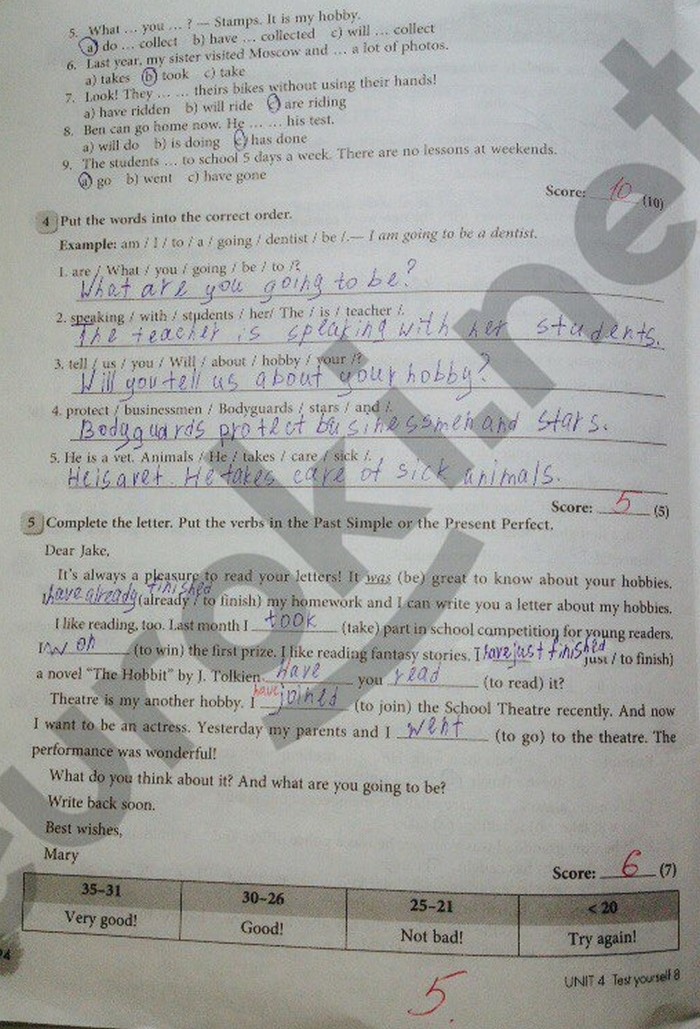 5. What ... you ... ? — Stamps. It is my hobby.
a) do ... collect b) have ... collected c) will ... collect
6. Last year, my sister visited Moscow and ... a lot of photos.
a) takes b) took c) take
7. Look! They ... ... theirs bikes without using their hands!
a) have ridden b) will ride c) are riding
8. Ben can go home now. He ... ... his test.
a) will do b) is doing c) has done
9. The students ... to school 5 days a week. There are no lessons at weekends.
a) go b) went c) have gone
Score: 10 (10)
4 Put the words into the correct order.
Example: am / I / to / a / going / dentist / be /.— I am going to be a dentist.
1. are / What / you / going / be / to /?
What are you going to be?
2. speaking / with / students / her/ The / is / teacher /.
The teacher is speaking with her students.
3. tell / us / you / Will / about / hobby / your /?
Will you tell us about your hobby?
4. protect / businessmen / Bodyguards / stars / and /.
Bodyguards protect businessmen and stars.
5. He is a vet. Animals / He / takes / care / sick /.
He is a vet. He takes care of sick animals.
Score: 5 (5)
5 Complete the letter. Put the verbs in the Past Simple or the Present Perfect.
Dear Jake,
It's always a pleasure to read your letters! It was (be) great to know about your hobbies.
I have already finished (already / to finish) my homework and I can write you a letter about my hobbies.
I like reading, too. Last month I took (take) part in school competition for young readers.
I won (to win) the first prize. I like reading fantasy stories. I have just finished just / to finish)
a novel “The Hobbit” by J. Tolkien. Have you read (to read) it?
Theatre is my another hobby. I have joined (to join) the School Theatre recently. And now
I want to be an actress. Yesterday my parents and I went (to go) to the theatre. The
performance was wonderful!
What do you think about it? And what are you going to be?
Write back soon.
Best wishes,
Mary
Score: 6 (7)
35–31 30–26 25–21 < 20
Very good! Good! Not bad! Try again!
UNIT 4 Test yourself 8
5.
euroki.net